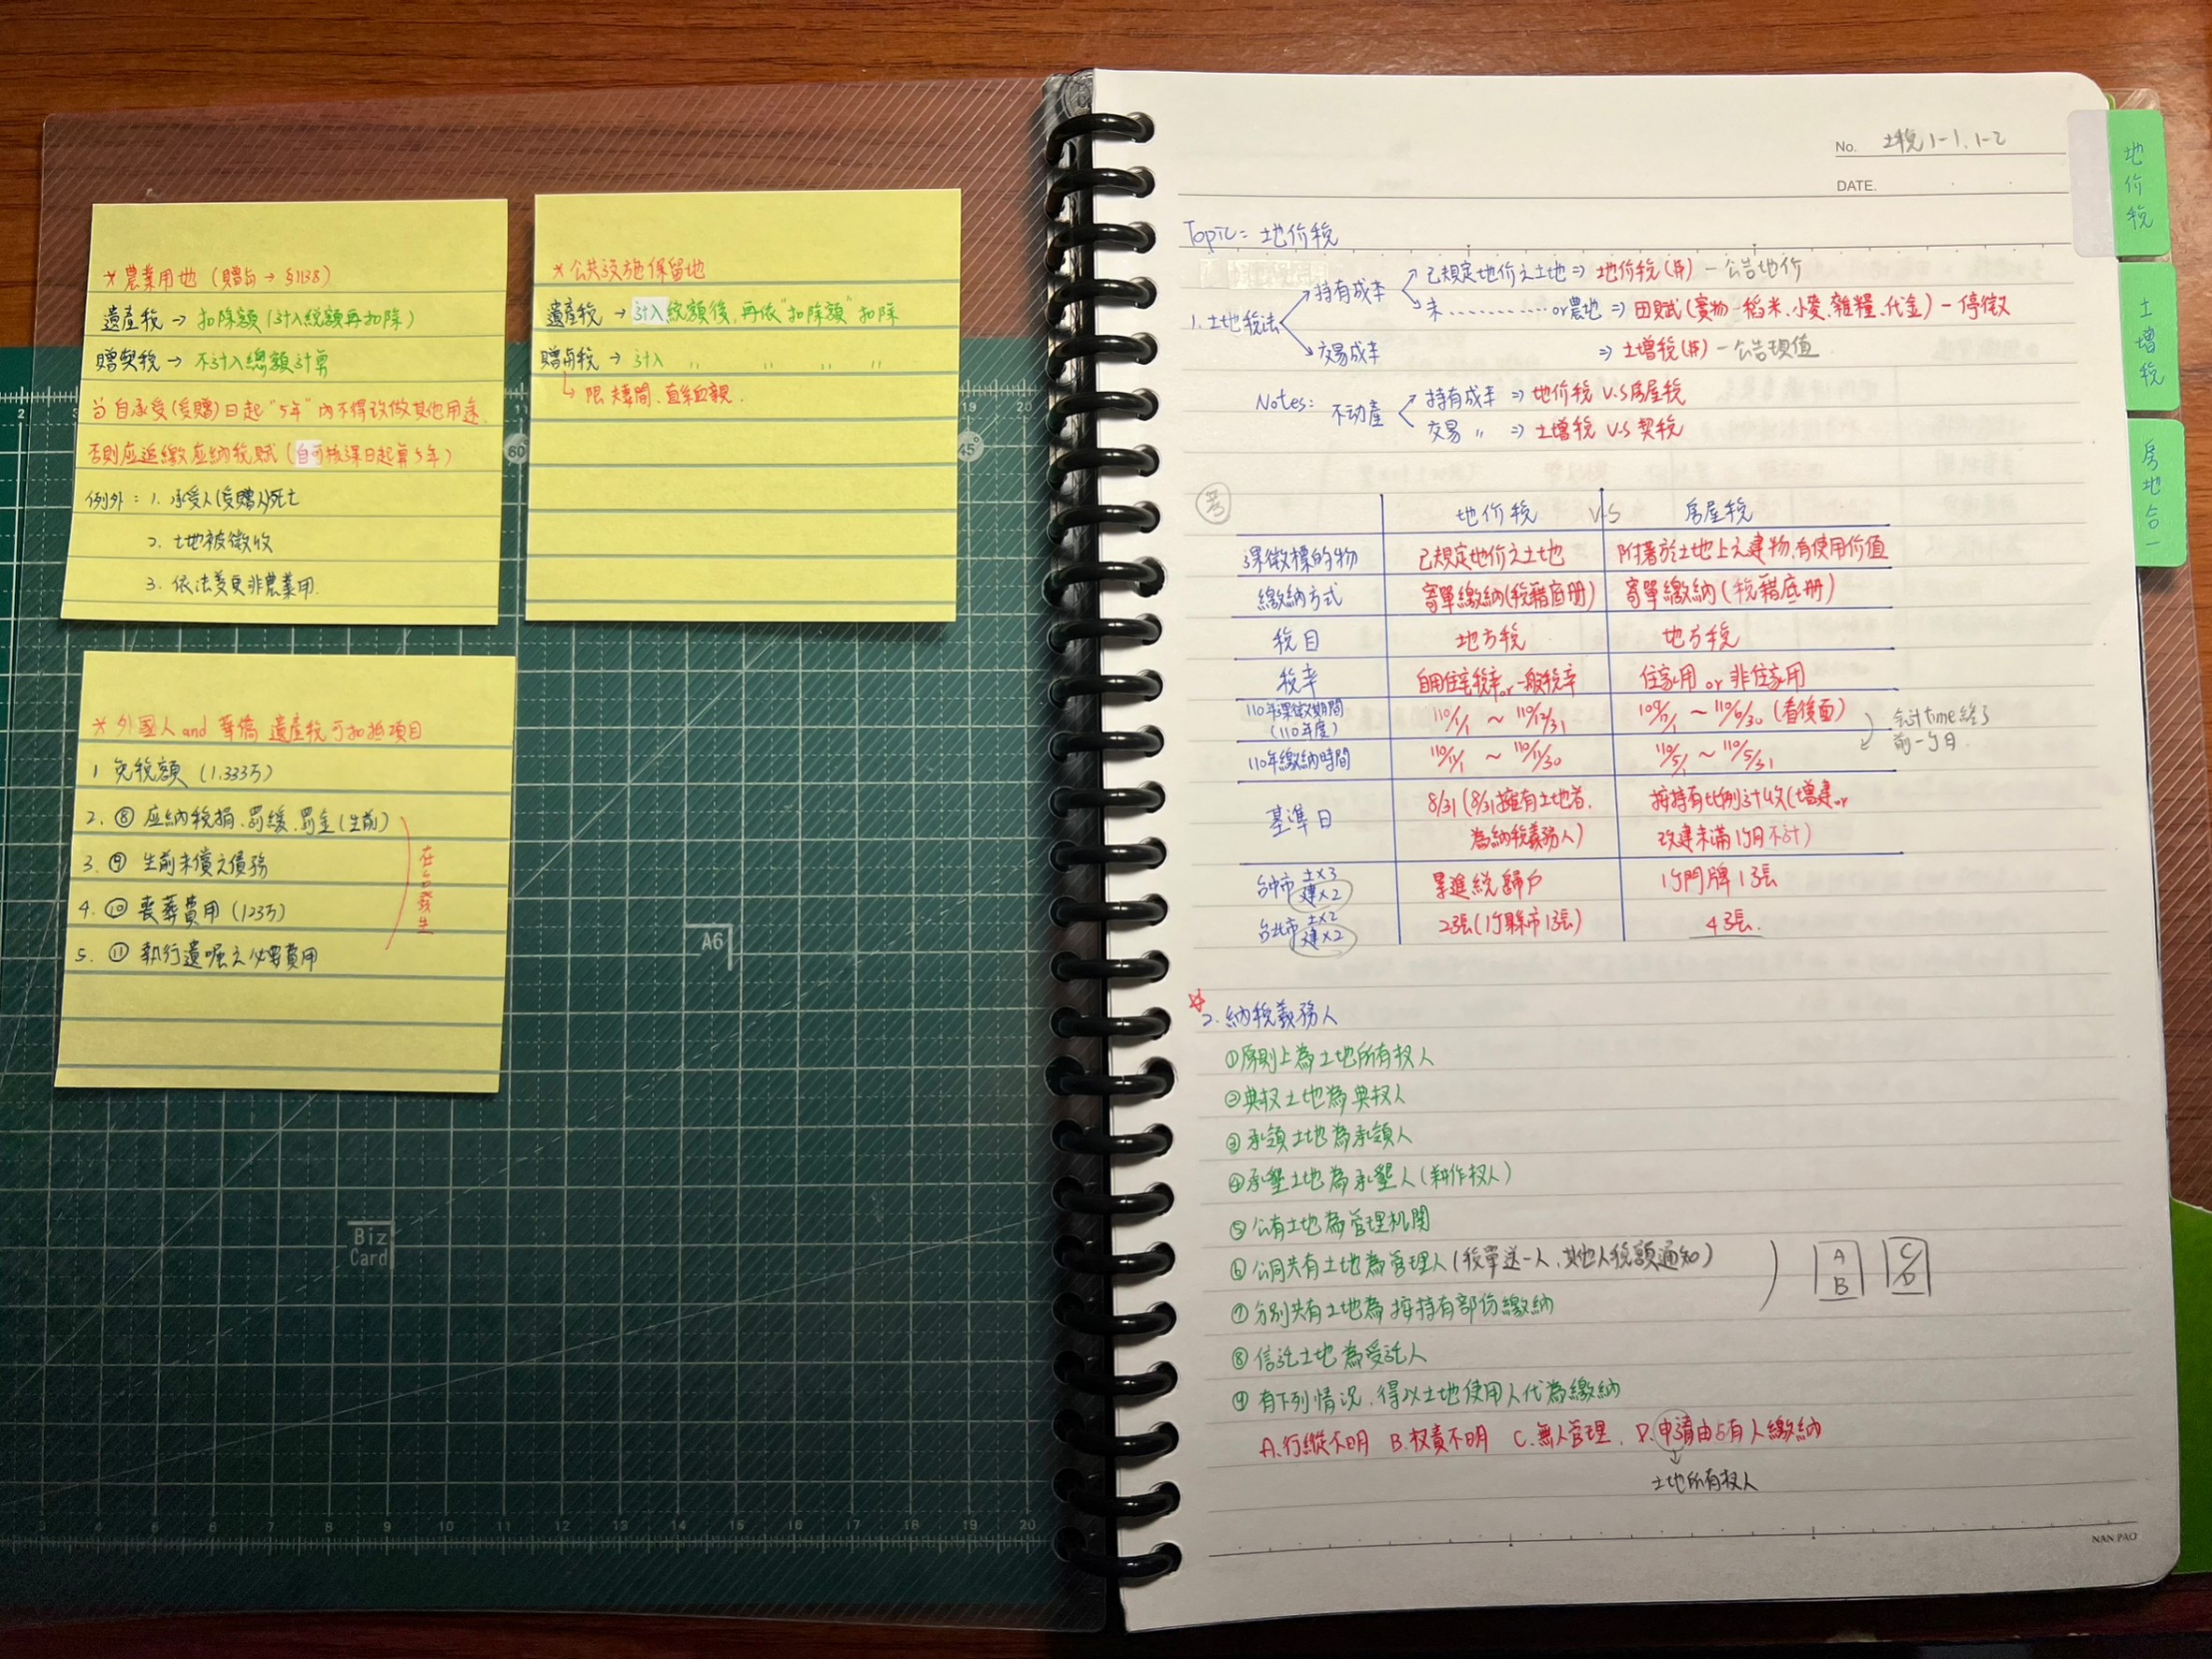 *農業用地(贈与→§1138)
遺產税→扣除額(計入総額再扣除)
贈契税→不計入總額計算
自承受(受贈)日起"5年"內不得改做其他用途.
否則应追繳应納税賦(自核課日起算5年)
例外:1.承受人(受贈人)死亡
2.土地被徵收
3.依法变更非農業用.
*公共設施保留地
遺產税→計入総額後,再依"扣除額"扣除
贈与税→計入 〃 〃 〃 〃
↳限夫妻間、直系血親.
*外國人and華僑 遺產税可扣抵項目
1 免税額(1.333万)
2.⑧应納税捐、罰緩、罰金(生前)
3.⑨生前未償之債務
4.⑩喪葬費用(123万)
5.⑪執行遺囑之必要費用
在台發生
2 3 11 19 20
60° 45°
A6
Biz
Card
3 4 5 6 7 8 9 10 11 12 13 14 15 16 17 18 19 20
No. 土税1-1.1-2
DATE.
地价税
土增税
房地合一
Topic=地价税
1.土地税法
持有成本
已規定地价之土地⇒地价税(井)-公告地价
未…………or農地⇒田賦(實物-稻米、小麥、雜糧、代金)-停徵
交易成本 ⇒土增税(井)-公告現值
Notes: 不动產
持有成本⇒地价税V.S房屋税
交易 〃 ⇒土增税V.S契税
考
地价税 V.S 房屋税
課徵標的物 已規定地价之土地 附著於土地上之建物,有使用价值
繳納方式 寄單繳納(税籍底册) 寄單繳納(税籍底册)
税目 地方税 地方税
税率 自用住宅税率or一般税率 住家用or非住家用
110年課徵期間
(110年度) 110/1/1~110/12/31 109/7/1~110/6/30(看後面)
110年繳納時間 110/11/1~110/11/30 110/5/1~110/5/31
会計time終了
前一个月.
基準日 8/31(8/31擁有土地者,為納税義務人) 按持有比例計收(增建or改建未滿1个月不計)
台中市 土×3 建×2 累進総歸户 1个門牌1張
台北市 土×2 建×2 2張(1个縣市1張) 4張.
☆
2.納税義務人
①原則上為土地所有权人
②典权土地為典权人
③承領土地為承領人
④承墾土地為承墾人(耕作权人)
⑤公有土地為管理机関
⑥公同共有土地為管理人(税單送一人,其他人税額通知)
A B C D
⑦分別共有土地為按持有部份繳納
⑧信託土地為受託人
⑨有下列情况,得以土地使用人代為繳納
A.行縱不明 B.权責不明 C.無人管理. D.申請由占有人繳納
土地所有权人
NAN PAO